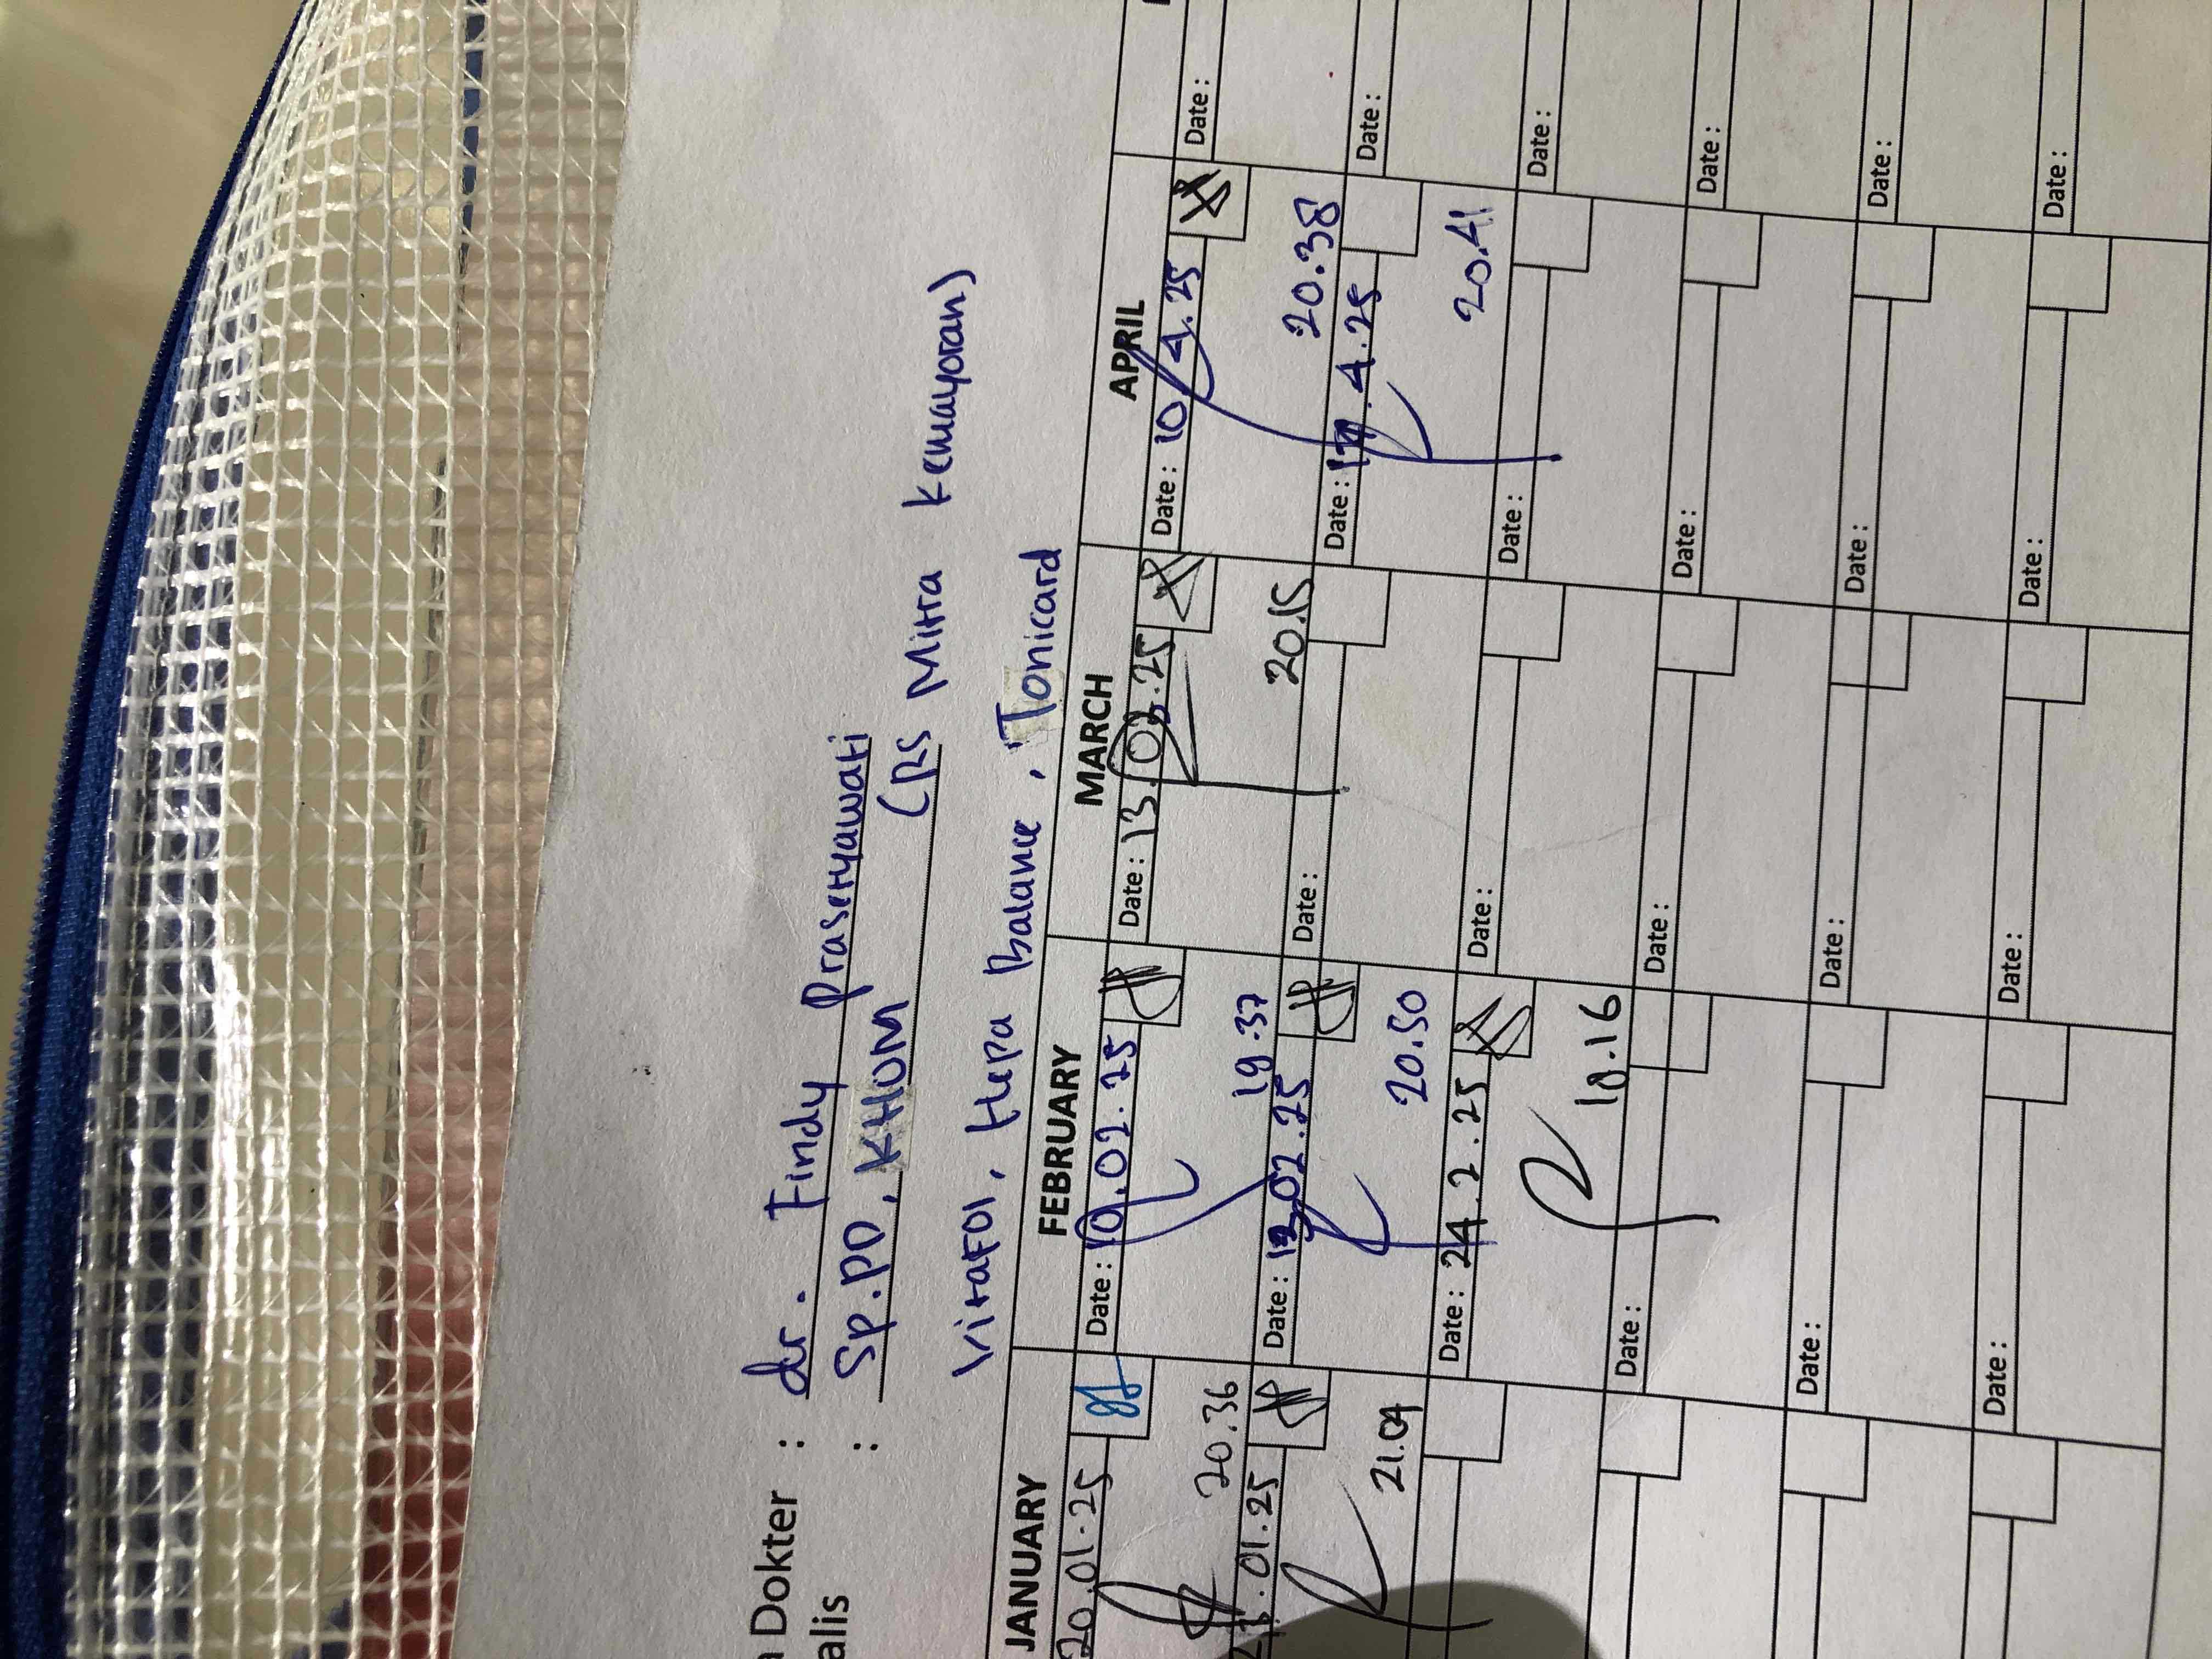 Dokter : dr. Findy Prasetyawati
alis : Sp.PD, KHOM (RS Mitra Kemayoran)
Vitafol, Hepa Balance, Tonicard
JANUARY FEBRUARY MARCH APRIL
20.01.25 Date : 10.02.25 Date : 13.03.25 Date : 10.4.25 Date :
20.36 19.37 20.15 20.38
.01.25 Date : 13.02.25 Date : Date : 17.4.25 Date :
21.09 20.50 20.41
Date : 24.2.25 Date : Date : Date :
18.16
Date : Date : Date : Date :
Date : Date : Date : Date :
Date : Date : Date : Date :